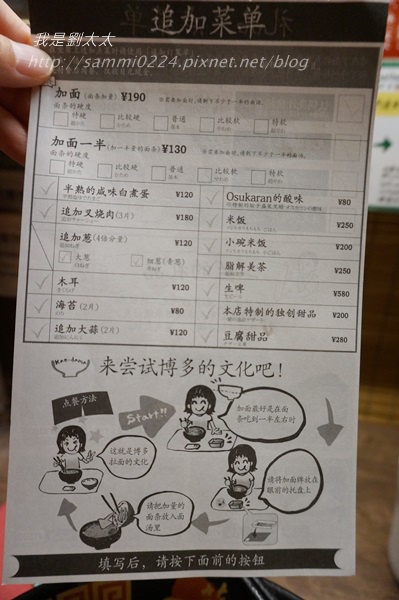 追加菜单
我是劉太太
http://sammi0224.pixnet.net/blog
加面 (面条加量) ¥190
面条的硬度
特硬 比较硬 普通 比较软 特软
加面一半 (加一半量的面条) ¥130
面条的硬度
特硬 比较硬 普通 比较软 特软
半熟的咸味白煮蛋 ¥120
追加叉烧肉(3片) ¥180
追加葱(4倍分量) ¥120
大葱 细葱(青葱)
木耳 ¥120
海苔(2片) ¥80
追加大蒜(2片) ¥120
Osukaran的酸味 ¥80
米饭 ¥250
小碗米饭 ¥200
脂解美茶 ¥250
生啤 ¥580
本店特制的独创甜品 ¥200
豆腐甜品 ¥280
来尝试博多的文化吧!
点餐方法
Start!!
加面最好是在面
条吃到一半左右时
请将加面牌放在
眼前的托盘上
请把加量的
面条放入面
汤里
这就是博多
拉面的文化
填写后，请按下面前的按钮